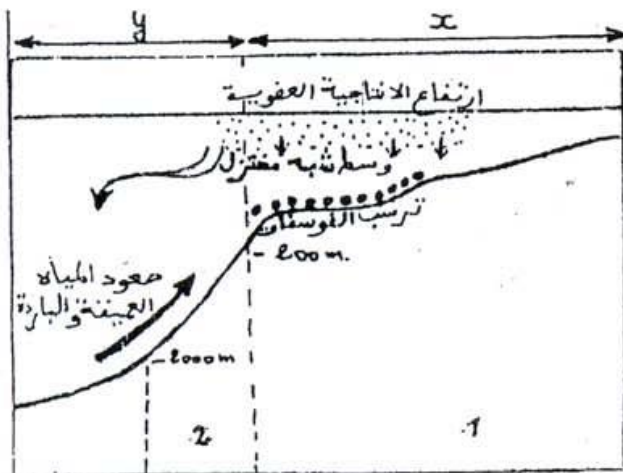 y
x
ارتفاع الانتاجية العضوية
وسط شبه مختزل
ترسب الفوسفات
- 200m.
صعود المياه
العميقة والباردة
- 2000m
2
1